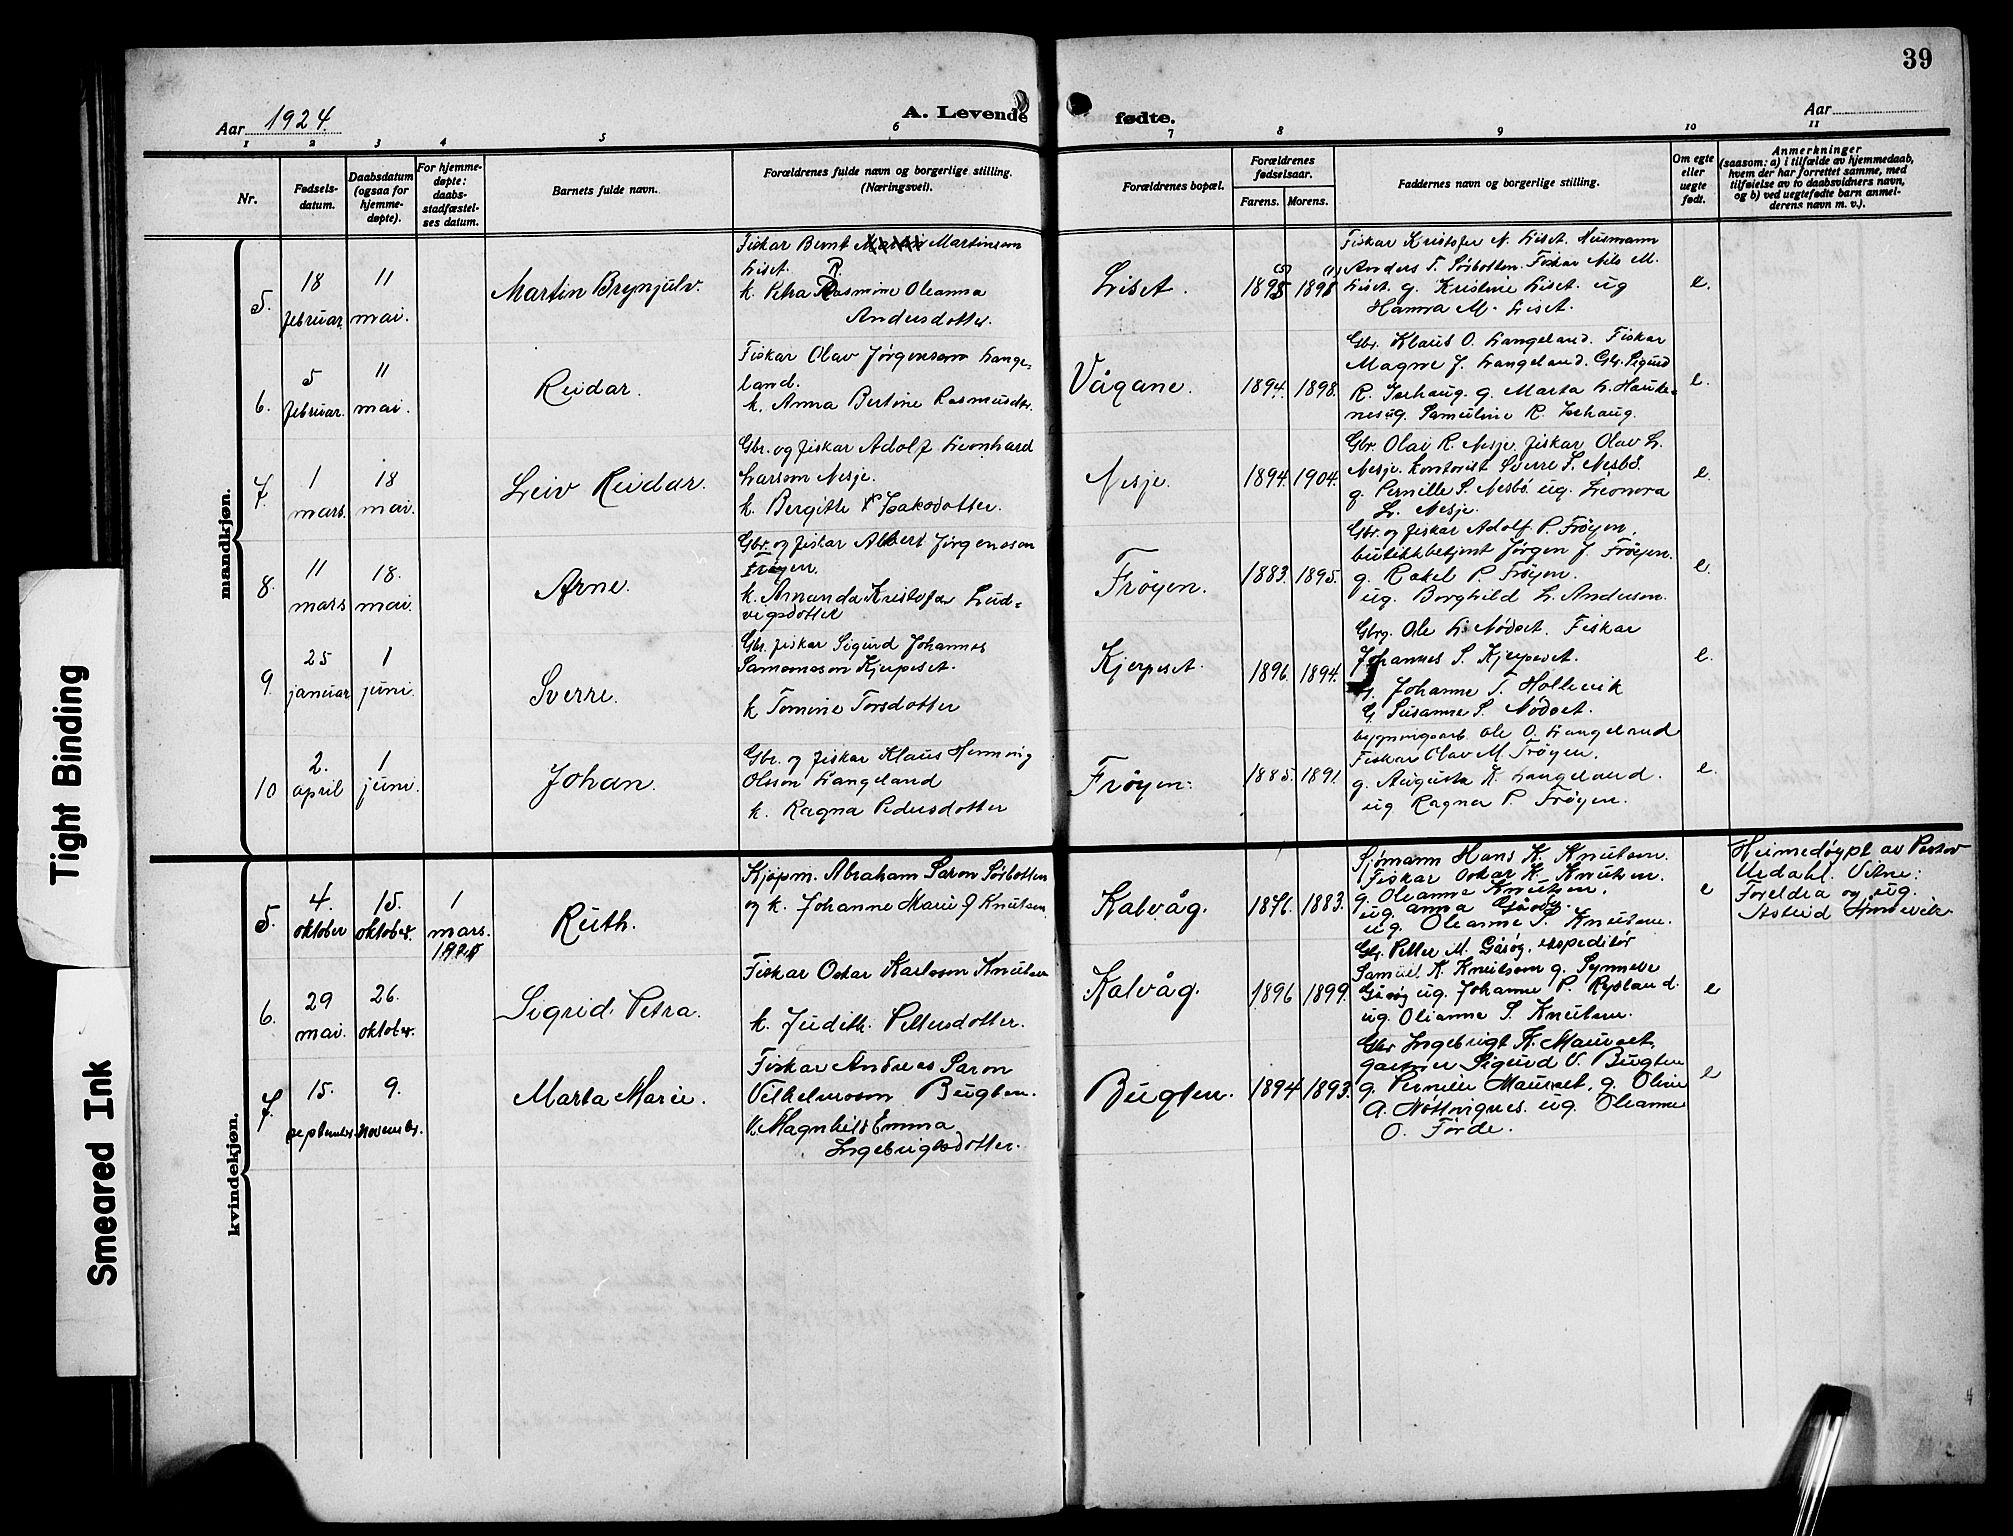 39
Aar 1924.
A. Levende fødte.
Aar
1 2 3 4 5 6 7 8 9 10 11
Nr.
Fødsels-
datum.
Daabsdatum
(ogsaa for
hjemme-
døpte).
For hjemme-
døpte:
daabs-
stadfæstel-
ses datum.
Barnets fulde navn.
Forældrenes fulde navn og borgerlige stilling.
(Næringsvei).
Forældrenes bopæl.
Forældrenes
fødselsaar.
Farens. Morens.
Faddernes navn og borgerlige stilling.
Om egte
eller
uegte
født.
Anmerkninger
(saasom: a) i tilfælde av hjemmedaab,
hvem der har forrettet samme, med
tilføielse av to daabsvidners navn,
og b) ved uegtefødte barn anmel-
derens navn m. v.).
mandkjøn.
5.
18
februar
11
mai.
Martin Brynjulv.
Fiskar Bernt Martinson
Liset.
k. Petra Rasmine Oleanna
Andersdotter.
Liset.
1895 1898
Fiskar Kristofer N. Liset. Husmann
Anders T. Sørbotten. Fiskar Nils M.
Liset. g. Kristine Liset. ug
Hanna M. Liset.
e.
6.
5
februar.
11
mai.
Reidar.
Fiskar Olav Jørgenson Lange-
land.
k. Anna Bertine Rasmusdtr.
Vågane.
1894. 1898.
Gbr. Klaus O. Langeland. Fiskar
Magne J. Langeland. Gbr. Sigurd
R. Ishaug. g. Marta L. Hauke-
nes ug. Samuline R. Ishaug.
e.
7.
1
mars.
18
mai.
Leiv Reidar.
Gbr. og fiskar Adolf Leonhard
Larson Nesje.
k. Bergitte Isaksdotter.
Nesje.
1894. 1904.
Gbr. Olai R. Nesje, fiskar Olav L.
Nesje. Kontorist Sverre S. Nesbø.
g. Pernille S. Nesbø. ug. Leonora
L. Nesje.
e.
8.
11
mars
18.
mai.
Arne.
Gbr. og fiskar Albert Jørgensson
Frøyen.
k. Amanda Kristofa Lud-
vigsdotter
Frøyen.
1883. 1895.
Gbr. og fiskar Adolf P. Frøyen,
butikkbetjent Jørgen J. Frøyen.
g. Rakel P. Frøyen.
ug. Borghild L. Anderson.
e
9.
25
januar
1
juni.
Sverre.
Gbr. fiskar Sigurd Johannes
Samsonson Kjerpeset.
k Tomine Torsdotter
Kjerpeset.
1896. 1894.
Gbr. Ole L. Nødset. Fiskar
Johannes S. Kjerpeset.
Johanne T. Hollevik
G. Susanne S. Nødset.
e.
10
2.
april
1
juni.
Johan.
Gbr. og fiskar Klaus Henning
Olsson Langeland
k. Ragna Pedersdotter
Frøyen.
1885. 1891.
bygningsarb. Ole O. Langeland
Fiskar Olav M. Frøyen.
g. Augusta K. Langeland.
ug Ragna P. Frøyen.
e.
kvindekjøn.
5.
4.
oktober
15.
oktober.
1
mars.
Ruth.
Kjøpm. Abraham Saron Sørbotten
og k. Johanne Marie J Knutsen.
Kalvåg.
1876. 1883.
Sjømann Hans K. Knutsen.
Fiskar Oskar K. Knutsen.
g. Oleanna Knutsen.
ug. Anna Gåsøy.
ug. Oleanne S. Knutsen.
e
Heimedøypt av Pastor
Urdahl. Vitne:
Foreldra og ug.
Astrid
6.
29
mai.
26.
oktober.
Sigrid Petra.
Fiskar Oskar Karlsson Knutsen
k. Judith Pettersdotter.
Kalvåg.
1896 1899.
Gbr. Petter M. Gåsøy, ekspeditør
Samuel K. Knutson g. Synneve
Gåsøy ug. Johanne P. Rysland.
ug. Olianne S. Knutsen.
e
7.
15.
september.
9.
november.
Marta Marie.
Fiskar Andreas Saron
Vilhelmsson Bugten.
k. Magnhild Emma
Ingebrigtsdotter.
Bugten.
1894 1893.
Gbr Ingebrigt K. Mauraset,
gartner Sigurd V. Bugten
g. Pernille Mauraset, g. Oline
A. Nøttvignes. ug. Oleanne
O. Førde.
e
Tight Binding
Smeared Ink